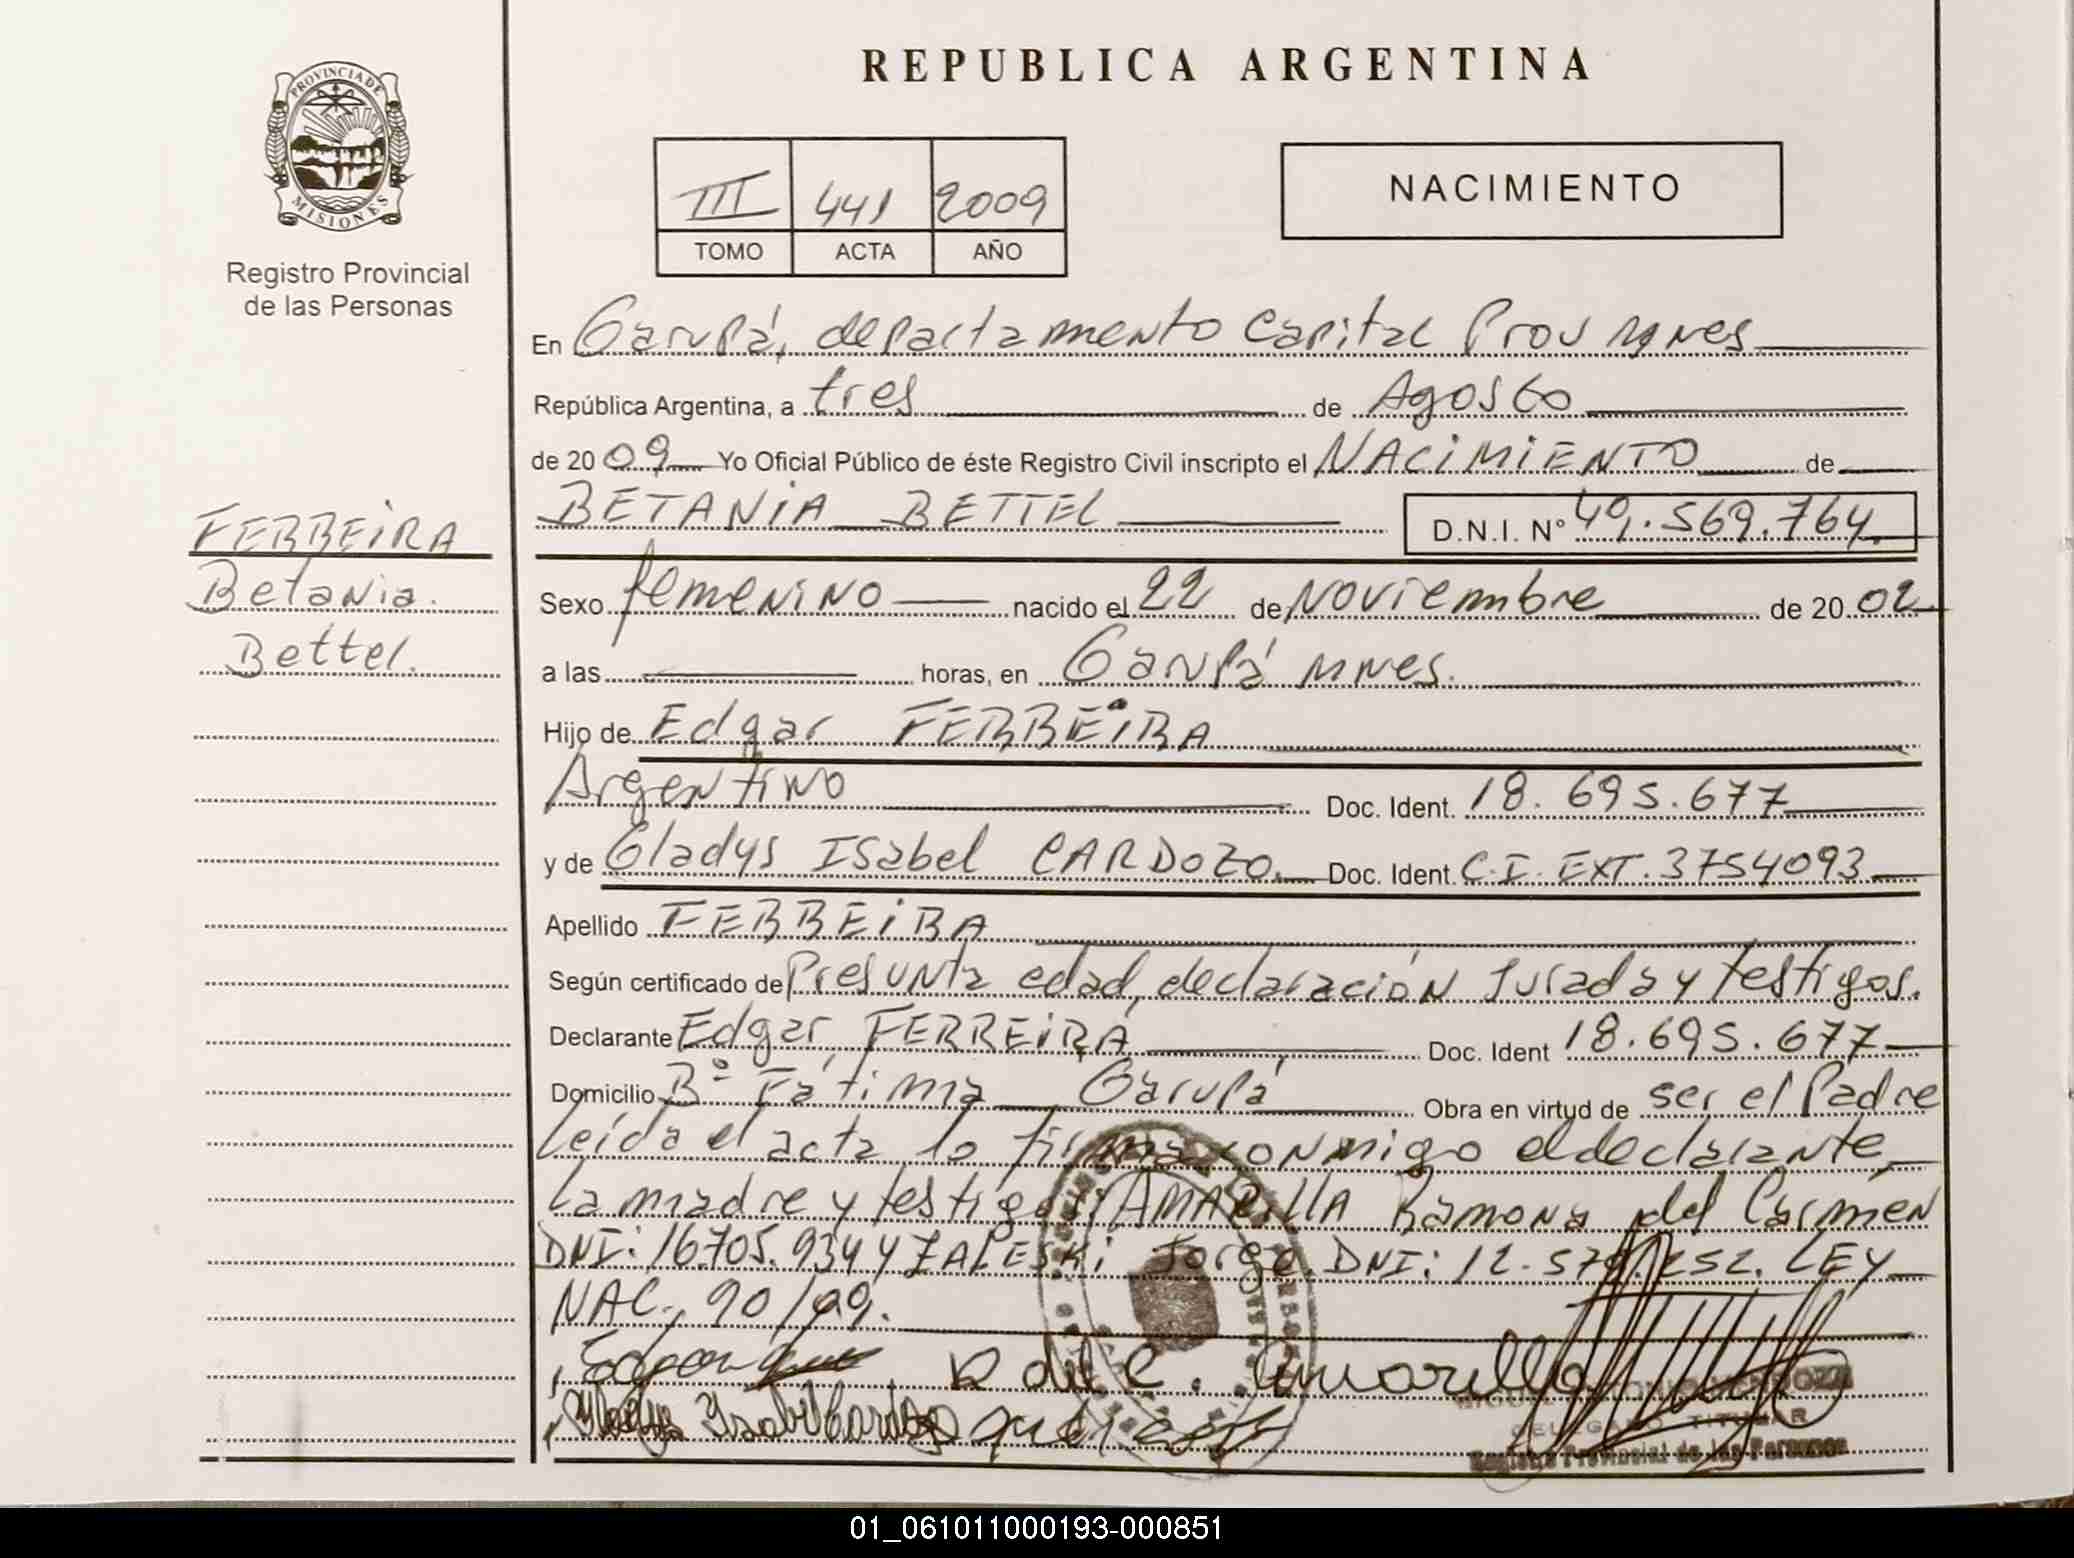 PROVINCIA DE
MISIONES
Registro Provincial
de las Personas
REPUBLICA ARGENTINA
III 441 2009
TOMO ACTA AÑO
NACIMIENTO
En Garupá, departamento Capital Prov Mnes
República Argentina, a tres de Agosto
de 2009 Yo Oficial Público de éste Registro Civil inscripto el NACIMIENTO de
BETANIA BETTEL D.N.I. Nº 49.569.764.
FERREIRA
Betania.
Bettel.
Sexo femenino nacido el 22 de Noviembre de 2002
a las horas, en Garupá Mnes.
Hijo de Edgar FERREIRA
Argentino Doc. Ident. 18.695.677
y de Gladys Isabel CARDOZO. Doc. Ident. C.I. EXT. 3754093
Apellido FERREIRA
Según certificado de Presunta edad, declaración Jurada y testigos.
Declarante Edgar FERREIRA Doc. Ident 18.695.677
Domicilio Bº Fátima Garupá Obra en virtud de ser el Padre
Leída el acta la firma conmigo el declarante,
la madre y testigos: AMARILLA Ramona del Carmen
DNI: 16.705.934 y ZALESKI Jorge. DNI: 12.570.252. LEY
NAC. 90/09.
Edgar
R del C. Amarilla
Gladys Isabel Cardozo
DELEGADO TITULAR
Registro Provincial de las Personas
01_061011000193-000851